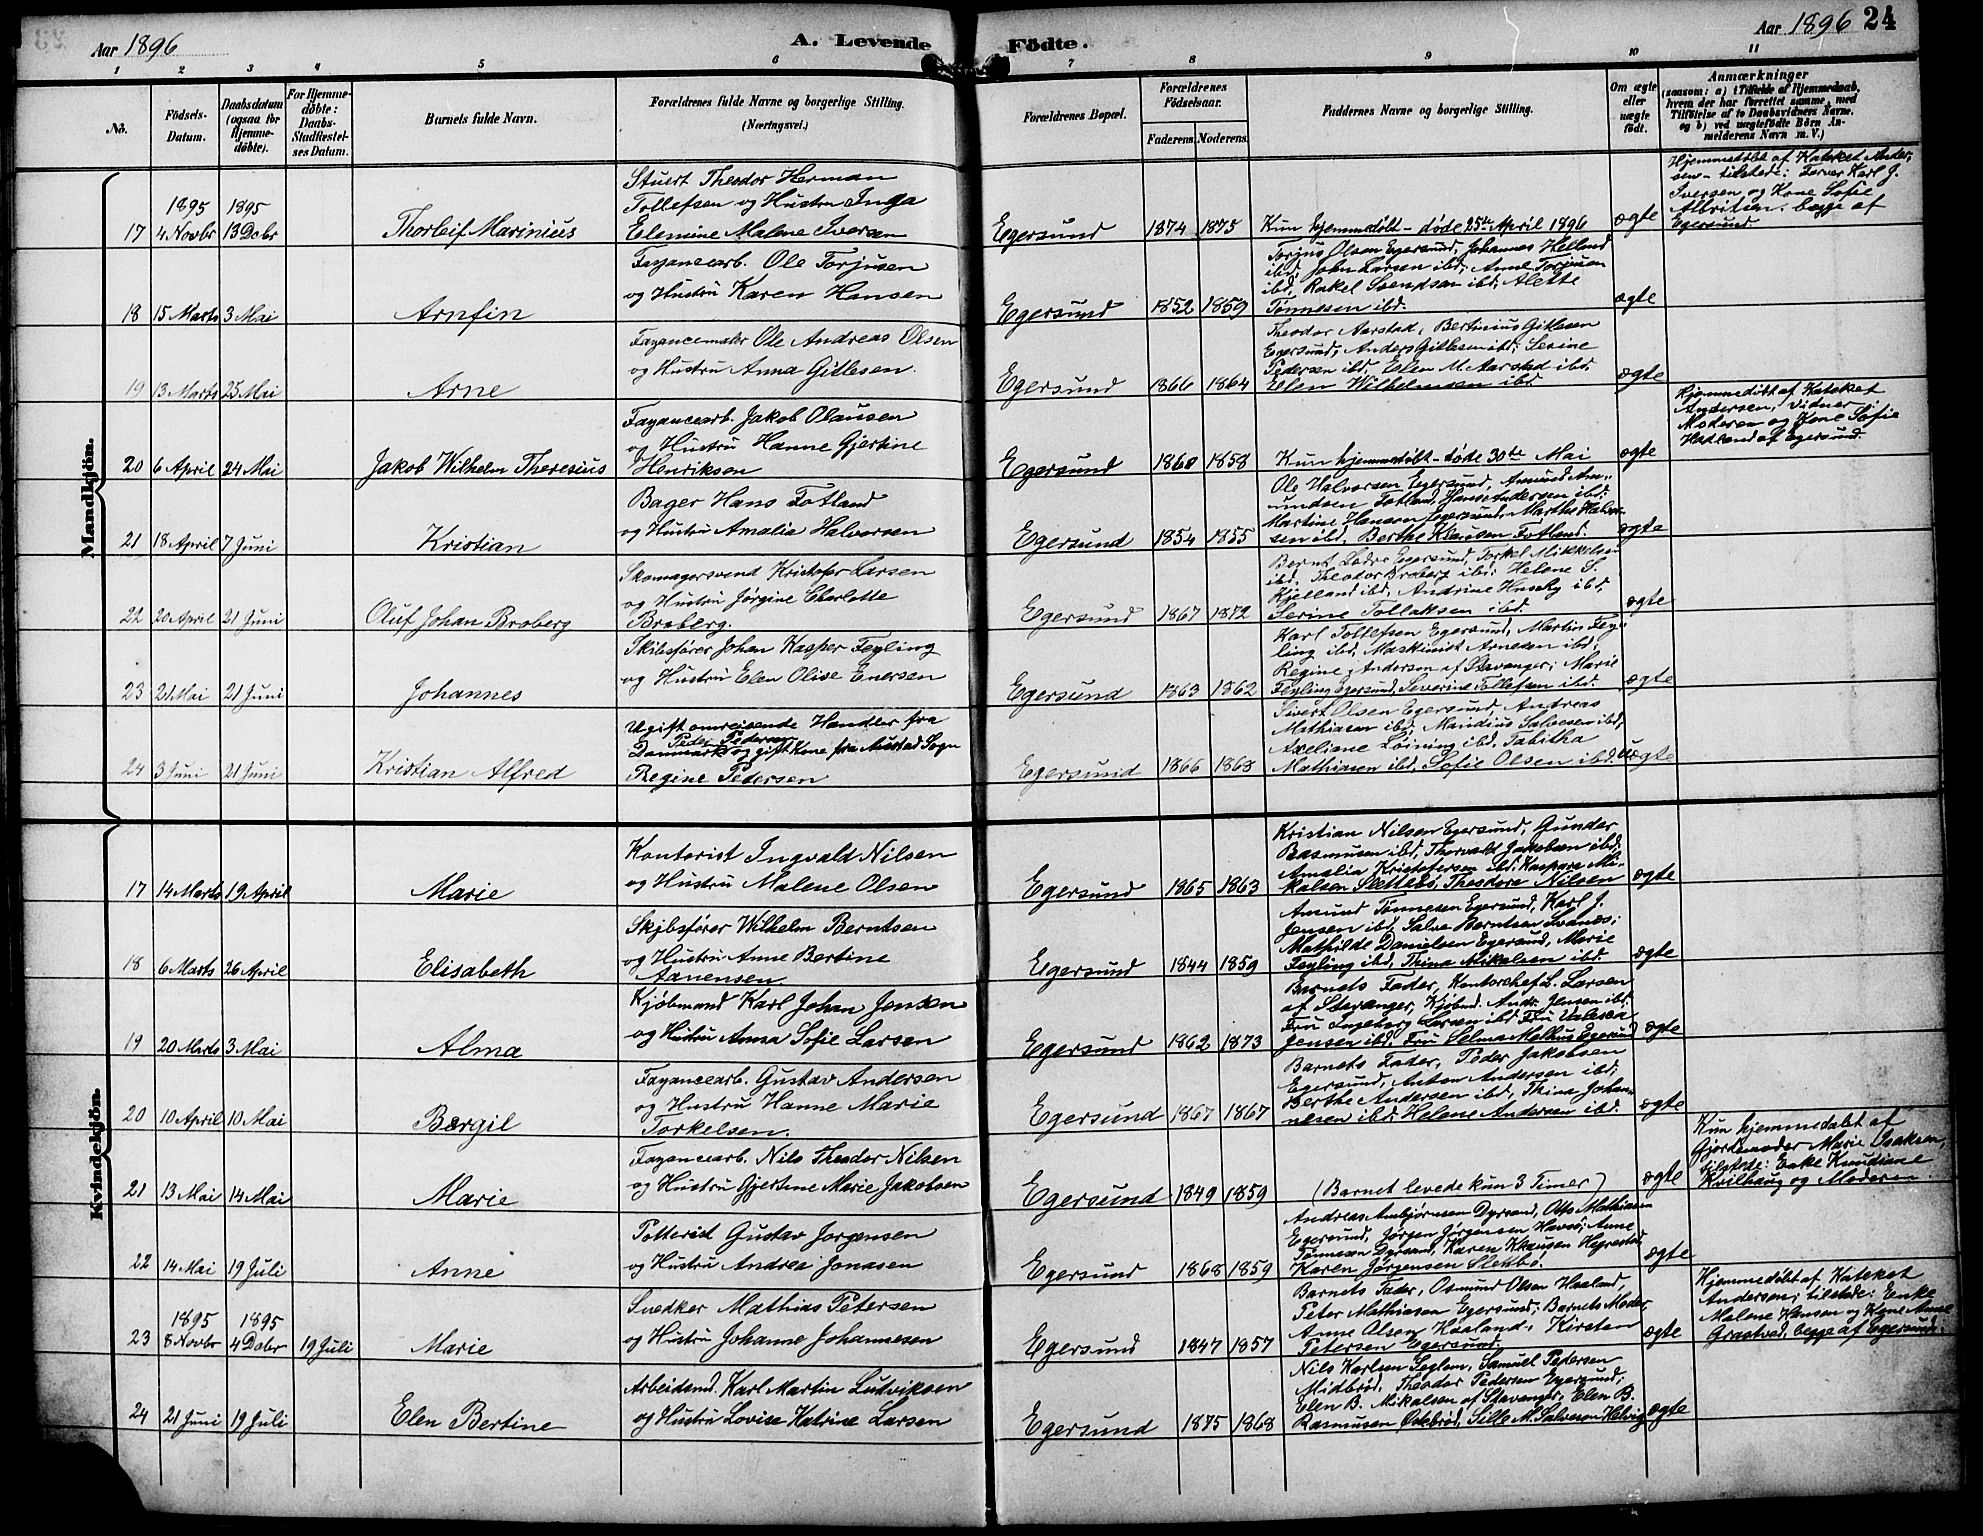 Aar 1896
A. Levende Födte.
Aar 1896 24
1 2 3 4 5 6 7 8 9 10 11
No.
Födsels-Datum.
Daabsdatum (ogsaa for Hjemme-döbte).
For Hjemme-döbte: Daabs-Stadfæstel-ses Datum.
Barnets fulde Navn.
Forældrenes fulde Navne og borgerlige Stilling. (Næringsvei.)
Forældrenes Bopæl.
Forældrenes Födselsaar.
Faderens. Moderens.
Faddernes Navne og borgerlige Stilling.
Om ægte eller uægte födt.
Anmærkninger
(saasom: a) i Tilfælde af Hjemmedaab, hvem der har forrettet samme, med Tilföielse af to Daabsvidners Navne, og b) ved uægtefödte Börn An-melderens Navn m. V.)
Mandkjön.
17 1895 4 Novbr 1895 13 Debr Thorleif Marinius
Stuert Theodor Herman
Tollefsen og Hustru Inga
Elemine Malene Iversen
Egersund 1874 1875 Kun hjemmedøbt - døde 25de April 1896 ægte
Hjemmedøbt af Kateket Ander-
sen - tilstede: Farver Karl J.
Iversen og Kone Sofie
Albritsen, begge af
Egersund.
18 15 Marts 3 Mai Arnfin
Fayancearb. Ole Torjusen
og Hustru Karen Hansen
Egersund 1852 1859
Torjus Olsen Egersund, Johannes Helland
ibd, John Larsen ibd; Anne Torjusen
ibd, Rakel Svendsen ibd, Alette
Tønnesen ibd.
ægte
19 13 Marts 25 Mai Arne
Fayancemaler Ole Andreas Olsen
og Hustru Anna Gitlesen.
Egersund 1866 1864
Theodor Aarstad, Bertinius Gitlesen
Egersund, Anders Gitlesen ibd; Serine
Pedersen ibd, Elen M. Aarstad ibd.
Elen Wilhelmsen ibd
ægte
20 6 April 24 Mai Jakob Wilhelm Theresius
Fayancearb. Jakob Olausen
og Hustru Hanne Gjertine
Henriksen
Egersund 1860 1858 Kun hjemmedøbt - døde 30te Mai ægte
Hjemmedøbt af Kateket
Andersen, Vidner
Moderen og Kone Sofie
Hadland af Egersund.
21 18 April 7 Juni Kristian
Bager Hans Fotland
og Hustru Amalia Halvorsen
Egersund 1854 1855
Ole Halvorsen Egersund, Amund Am-
undsen Fotland, Hans Andersen ibd:
Martine Hansen Egersund, Marthe Halvor-
sen ibd, Berthe Klausen Fotland.
ægte
22 20 April 21 Juni Oluf Johan Broberg
Skomagersvend Kristofer Larsen
og Hustru Jørgine Charlotte
Broberg.
Egersund 1867 1872
Bernt Egersund, Torkel Mikkelsen
ibd, Theodor Broberg ibd: Helene S.
Kjelland ibd, Andrine Huseby ibd,
Serine Tollaksen ibd.
ægte
23 21 Mai 21 Juni Johannes
Skibsfører Johan Kasper Feyling
og Hustru Elen Olise Enersen
Egersund 1863 1862
Karl Tollefsen Egersund, Martin Fey-
ling ibd, Maskinist Arnesen ibd;
Regine Andersen af Stavanger, Marie
Feyling Egersund, Severine Tollefsen ibd.
ægte
24 3 Juni 21 Juni Kristian Alfred
Ugift omreisende Handler fra
Peder Pedersen
Danmark og gift Kone fra Austad Sogn
Regine Pedersen
Egersund 1866 1868
Sivert Olsen Egersund, Andreas
Mathiasen ibd, Mandius Salvesen ibd,
Axeliane Løining ibd, Tabitha
Mathiasen ibd, Sofie Olsen ibd.
uægte
Kvindekjön.
17 14 Marts 19 April Marie
Kontorist Ingvald Nilsen
og Hustru Malene Olsen
Egersund 1865 1863
Kristian Nilsen Egersund, Gunder
Rasmusen ibd, Thorvald Jakobsen ibd;
Amalia Kristofersen ibd, Kaspara Mi-
kalsen Slettebø, Theodora Nilsen
ægte
18 6 Marts 26 April Elisabeth
Skibsfører Wilhelm Berntsen
og Hustru Anne Bertine
Aanensen.
Egersund 1844 1859
Amund Tønnesen Egersund, Karl J.
Jensen ibd, Salve Berntsen Svanes;
Mathilde Danielsen Egersund, Marie
Feyling ibd, Thina Mikalsen ibd.
ægte
19 20 Marts 3 Mai Alma
Kjøbmand Karl Johan Jensen
og Hustru Anna Sofie Larsen
Egersund 1862 1873
Barnets Fader, Kontorchef L. Larsen
af Stavanger, Kjøbmd. Andr. Jensen ibd:
Fru Ingeborg Larsen ibd, Fru
Jensen ibd. Fru Selma Melhus Egersund
ægte
20 10 April 10 Mai Børgil
Fayancearb. Gustav Andersen
og Hustru Hanne Marie
Torkelsen.
Egersund 1867 1867
Barnets Fader, Peder Jakobsen
Egersund, Anton Andersen ibd;
Berthe Andersen ibd, Thina Johan-
nesen ibd. Helene Andersen ibd.
ægte
21 13 Mai 14 Mai Marie
Fayancearb. Nils Theodor Nilsen
og Hustru Gjertine Marie Jakobsen
Egersund 1849 1859 (Barnet levede kun 3 Timer) ægte
Kun hjemmedøbt af
Gjordemoder Marie Isaksen,
tilstede: Enke Knudiane
Kvilhaug og Moderen.
22 14 Mai 19 Juli Anne
Potterist Gustav Jørgensen
og Hustru Andrea Jonasen
Egersund 1868 1859
Andreas Ambjørnsen Dyrsand, Otto Mathiasen
Egersund, Jørgen Jørgensen Havsø; Anne
Tønnesen Dyrsand, Karen Klausen Hegrestad,
Karen Jørgensen Sletbø.
ægte
23 1895 8 Novbr 1895 4 Debr 19 Juli Marie
Snedker Mathias Petersen
og Hustru Johanne Johannesen
Egersund 1847 1857
Barnets Fader, Osmund Olsen Haaland,
Peter Mathiasen Egersund; Barnets Moder,
Anne Olsen Haaland, Kirsten
Petersen Egersund.
ægte
Hjemmedøbt af Kateket
Andersen; tilstede: Enke
Malene Hansen og Kone Anne
Grastved, begge af Egersund.
24 21 Juni 19 Juli Elen Bertine
Arbeidsmd. Karl Martin Ludviksen
og Hustru Lovise Katrine Larsen
Egersund 1875 1868
Nils Karlsen Seglem, Samuel Pedersen
Midbrød, Theodor Pedersen Egersund,
Elen B. Mikalsen af Stavanger, Elen B.
Rasmusen Øskebrød, Sille M. Salvesen Helvig
ægte